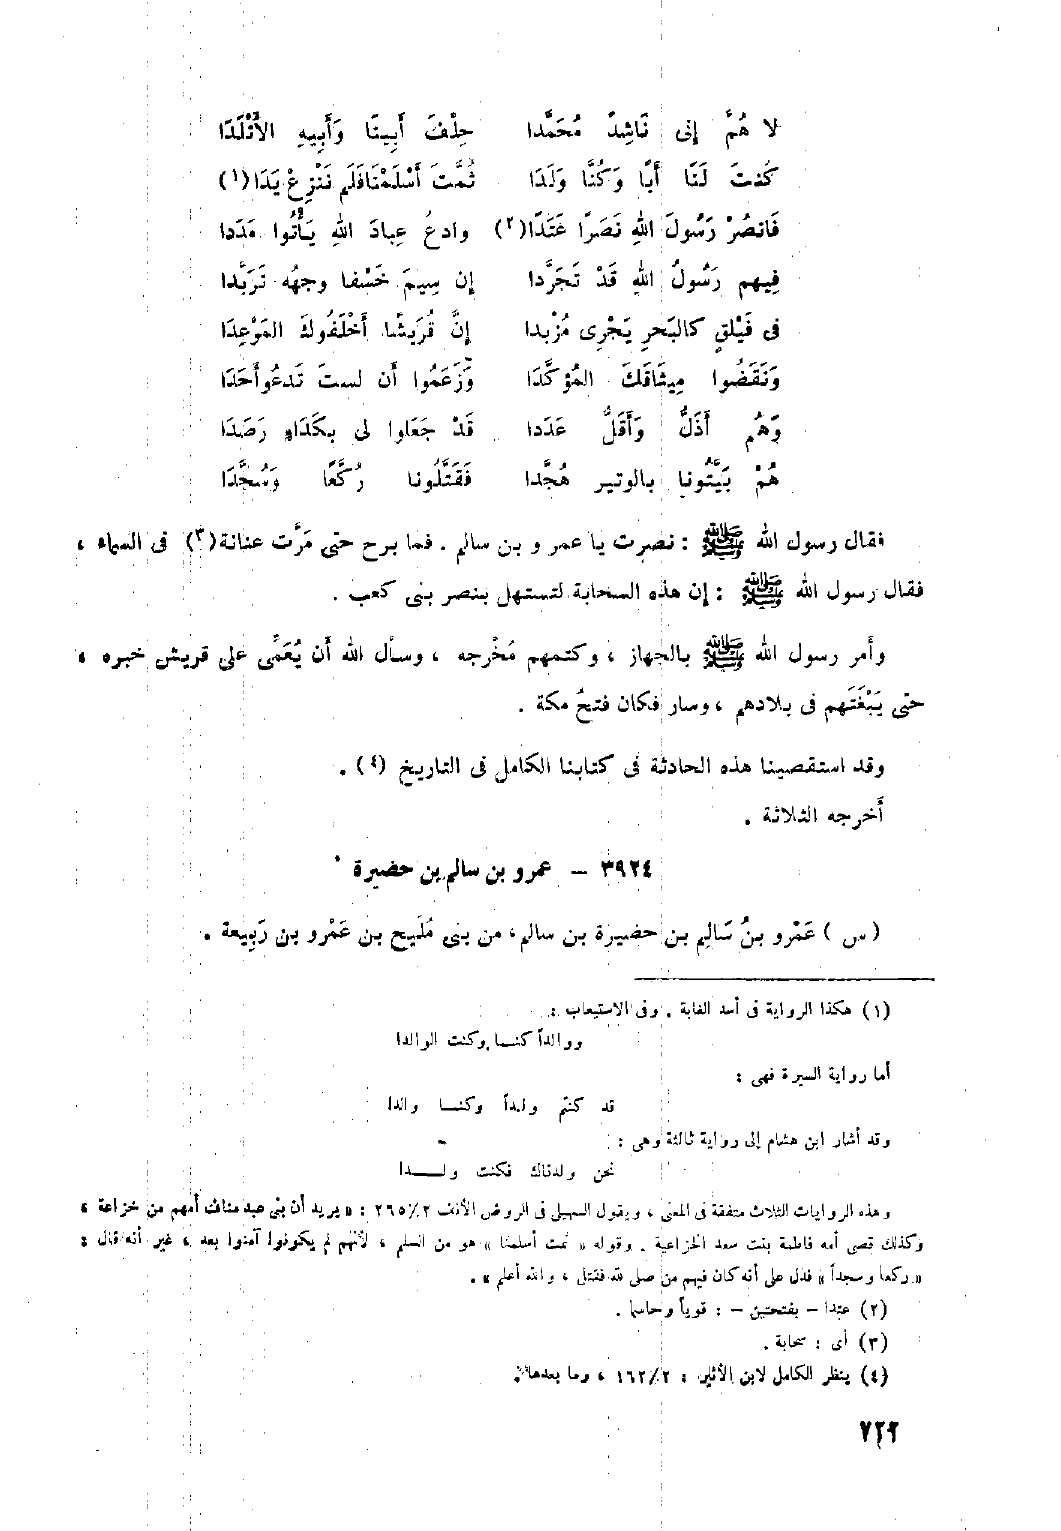 لا هُمَّ إنى نَاشِدٌ مُحَمَّدا حِلْفَ أَبِينَا وَأَبِيهِ الأَتْلَدَا
كُنتَ لَنَا أَبًا وَكُنَّا وَلَدَا ثُمَّتَ أَسْلَمْنَا فَلَم نَنْزِعْ يَدَا (١)
فَانصُرْ رَسُولَ اللهِ نَصْرًا عَتَدًا (٢) وادعُ عِبادَ اللهِ يَأْتُوا مَدَدا
فِيهم رَسُولُ اللهِ قَدْ تَجَرَّدا إن سِيمَ خَسْفا وجهُه تَرَبَّدا
فى فَيْلقٍ كالبَحرِ يَجْرِى مُزْبدا إنَّ قُرَيشًا أَخْلَفُوكَ المَوْعِدَا
وَنَقَضُوا مِيثَاقَكَ المُؤكَّدَا وَزَعَمُوا أن لستَ تَدعُو أَحَدَا
وَهُم أَذَلُّ وَأَقَلُّ عَدَدا قَدْ جَعَلوا لى بِكَدَاءٍ رَصَدَا
هُمْ بَيَّتُونا بالوتير هُجَّدا فَقَتَّلُونا رُكَّعًا وَسُجَّدَا
فقال رسول الله ﷺ : نصرت يا عمرو بن سالم . فما برح حتى مَرَّت عنانة (٣) فى السماء ،
فقال رسول الله ﷺ : إن هذه السحابة لتستهل بنصر بنى كعب .
وأمر رسول الله ﷺ بالجهاز ، وكتمهم مُخْرجه ، وسأل الله أن يُعَمِّى على قريش خبره ،
حتى يَبْغَتَهم فى بلادهم ، وسار فكان فتحُ مكة .
وقد استقصينا هذه الحادثة فى كتابنا الكامل فى التاريخ (٤) .
أَخرجه الثلاثة .
٣٩٢٤ – عمرو بن سالم بن حضيرة
(س) عَمْرو بنُ سَالِم بن حضيرة بن سالم، من بنى مُلَيح بن عَمْرو بن رَبِيعة .
(١) هكذا الرواية فى أسد الغابة . وفى الاستيعاب :
ووالداً كنا وكنت الوالدا
أما رواية السيرة فهى :
قد كنتم ولداً وكنا والدا
وقد أشار ابن هشام إلى رواية ثالثة وهى :
نحن ولدناك فكنت ولدا
وهذه الروايات الثلاث متفقة فى المعنى ، ويقول السهيلى فى الروض الأنف ٢٦٥/٢ : «يريد أن بنى عبد مناف أمهم من خزاعة ،
وكذلك قصى أمه فاطمة بنت سعد الخزاعية . وقوله « ثمت أسلمنا » هو من السلم ، لأنهم لم يكونوا آمنوا بعد ، غير أنه قال :
«ركعا وسجداً » فدل على أنه كان فيهم من صلى لله فقتل ، والله أعلم » .
(٢) عتدا – بفتحتين – : قوياً وحاسما .
(٣) أى : سحابة .
(٤) ينظر الكامل لابن الأثير : ١٦٢/٢ ، وما بعدها .
٧٢٦